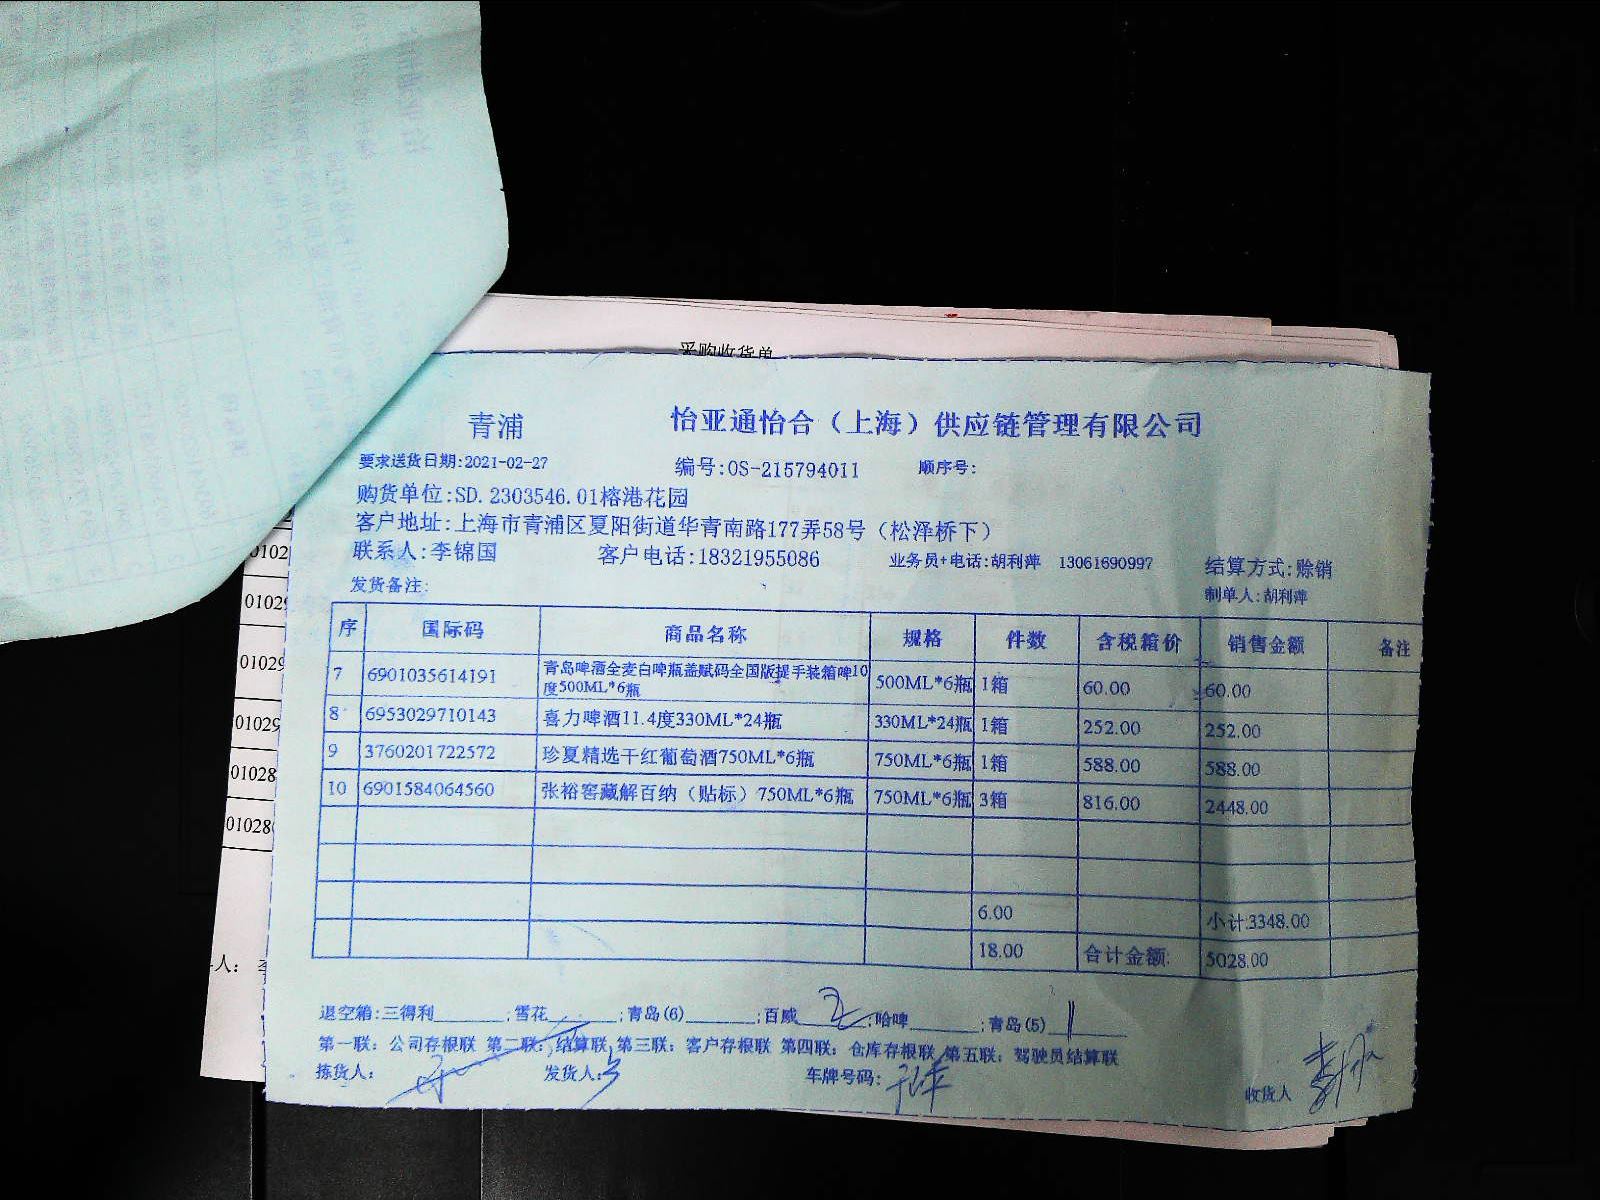 采购收货单
青浦 怡亚通怡合（上海）供应链管理有限公司
要求送货日期:2021-02-27 编号:OS-215794011 顺序号:
购货单位:SD.2303546.01榕港花园
客户地址:上海市青浦区夏阳街道华青南路177弄58号（松泽桥下）
联系人:李锦国 客户电话:18321955086 业务员+电话:胡利萍 13061690997 结算方式:赊销
发货备注: 制单人:胡利萍
序 国际码 商品名称 规格 件数 含税箱价 销售金额 备注
7 6901035614191 青岛啤酒全麦白啤瓶盖赋码全国版提手装箱啤10度500ML*6瓶 500ML*6瓶 1箱 60.00 60.00
8 6953029710143 喜力啤酒11.4度330ML*24瓶 330ML*24瓶 1箱 252.00 252.00
9 3760201722572 珍夏精选干红葡萄酒750ML*6瓶 750ML*6瓶 1箱 588.00 588.00
10 6901584064560 张裕窖藏解百纳（贴标）750ML*6瓶 750ML*6瓶 3箱 816.00 2448.00
6.00 小计:3348.00
18.00 合计金额: 5028.00
退空箱:三得利______;雪花______;青岛(6)______;百威______;哈啤______;青岛(5)______
第一联：公司存根联 第二联：结算联 第三联：客户存根联 第四联：仓库存根联 第五联：驾驶员结算联
拣货人： 发货人: 车牌号码： 收货人
0102
01029
01029
01029
01028
01028
人：